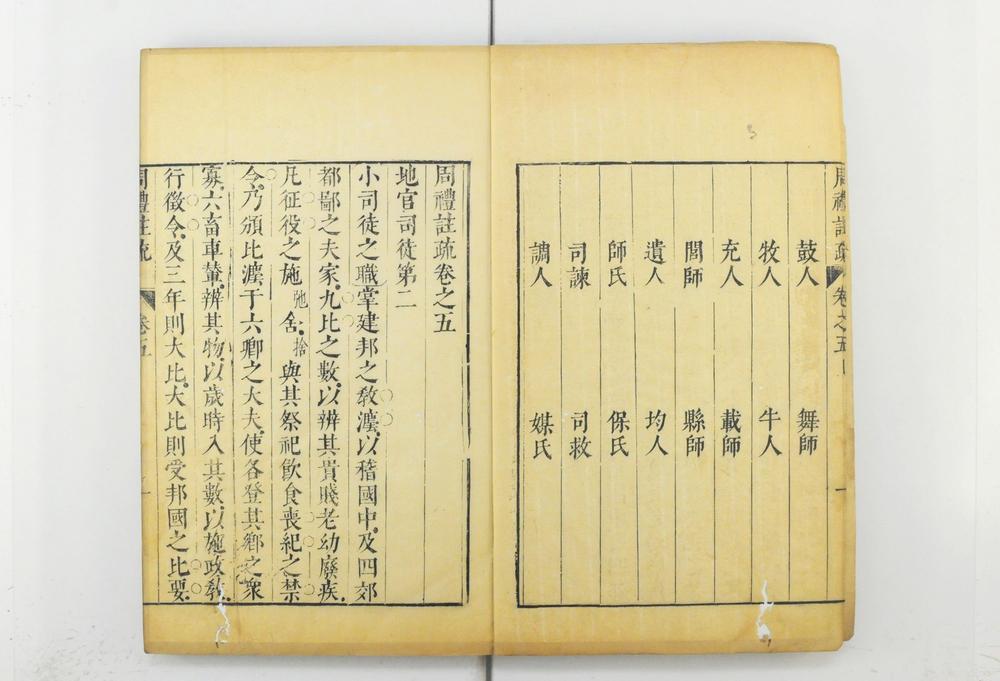 周禮註疏 卷之五 一
鼓人 舞師
牧人 牛人
充人 載師
閭師 縣師
遺人 均人
師氏 保氏
司諫 司救
調人 媒氏
周禮註疏卷之五
地官司徒第二
小司徒之職掌建邦之教灋以稽國中及四郊
都鄙之夫家九比之數以辨其貴賤老幼廢疾
凡征役之施弛舍捨與其祭祀飲食喪紀之禁
令乃頒比灋于六鄉之大夫使各登其鄉之衆
寡六畜車輦辨其物以歲時入其數以施政教
行徵令及三年則大比大比則受邦國之比要
周禮註疏 卷五 一